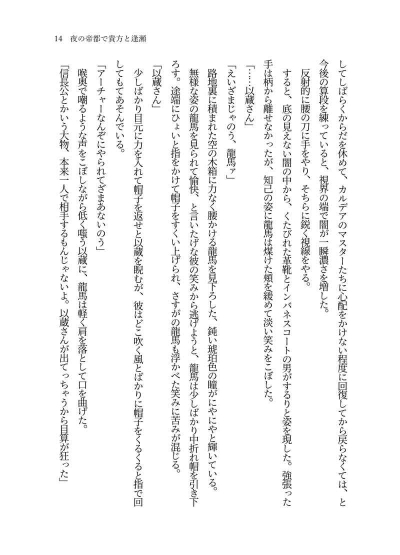 14　夜の帝都で貴方と逢瀬
してしばらくからだを休めて、カルデアのマスターたちに心配をかけない程度に回復してから戻らなくては、と
今後の算段を練っていると、視界の端で闇が一瞬濃さを増した。
反射的に腰の刀に手をやり、そちらに鋭く視線をやる。
すると、底の見えない闇の中から、くたびれた革靴とインバネスコートの男がするりと姿を現した。強張った
手は柄から離せなかったが、知己の姿に龍馬は煤けた頬を緩めて淡い笑みをこぼした。
「……以蔵さん」
「えいざまじゃのう、龍馬ァ」
路地裏に積まれた空の木箱に力なく腰かける龍馬を見下ろした、鈍い琥珀色の瞳がにやにやと輝いている。
無様な姿の龍馬を見られて愉快、と言いたげな彼の笑みから逃げようと、龍馬は少しばかり中折れ帽を引き下
ろす。途端にひょいと指をかけて帽子をすくい上げられ、さすがの龍馬も浮かべた笑みに苦みが混じる。
「以蔵さん」
少しばかり目元に力を入れて帽子を返せと以蔵を睨むが、彼はどこ吹く風とばかりに帽子をくるくると指で回
してもてあそんでいる。
「アーチャーなんぞにやられてざまあないのう」
喉奥で嘲るような声をこぼしながら低く嗤う以蔵に、龍馬は軽く肩を落として口を曲げた。
「信長公とかいう大物、本来一人で相手するもんじゃないよ。以蔵さんが出てっちゃうから目算が狂った」